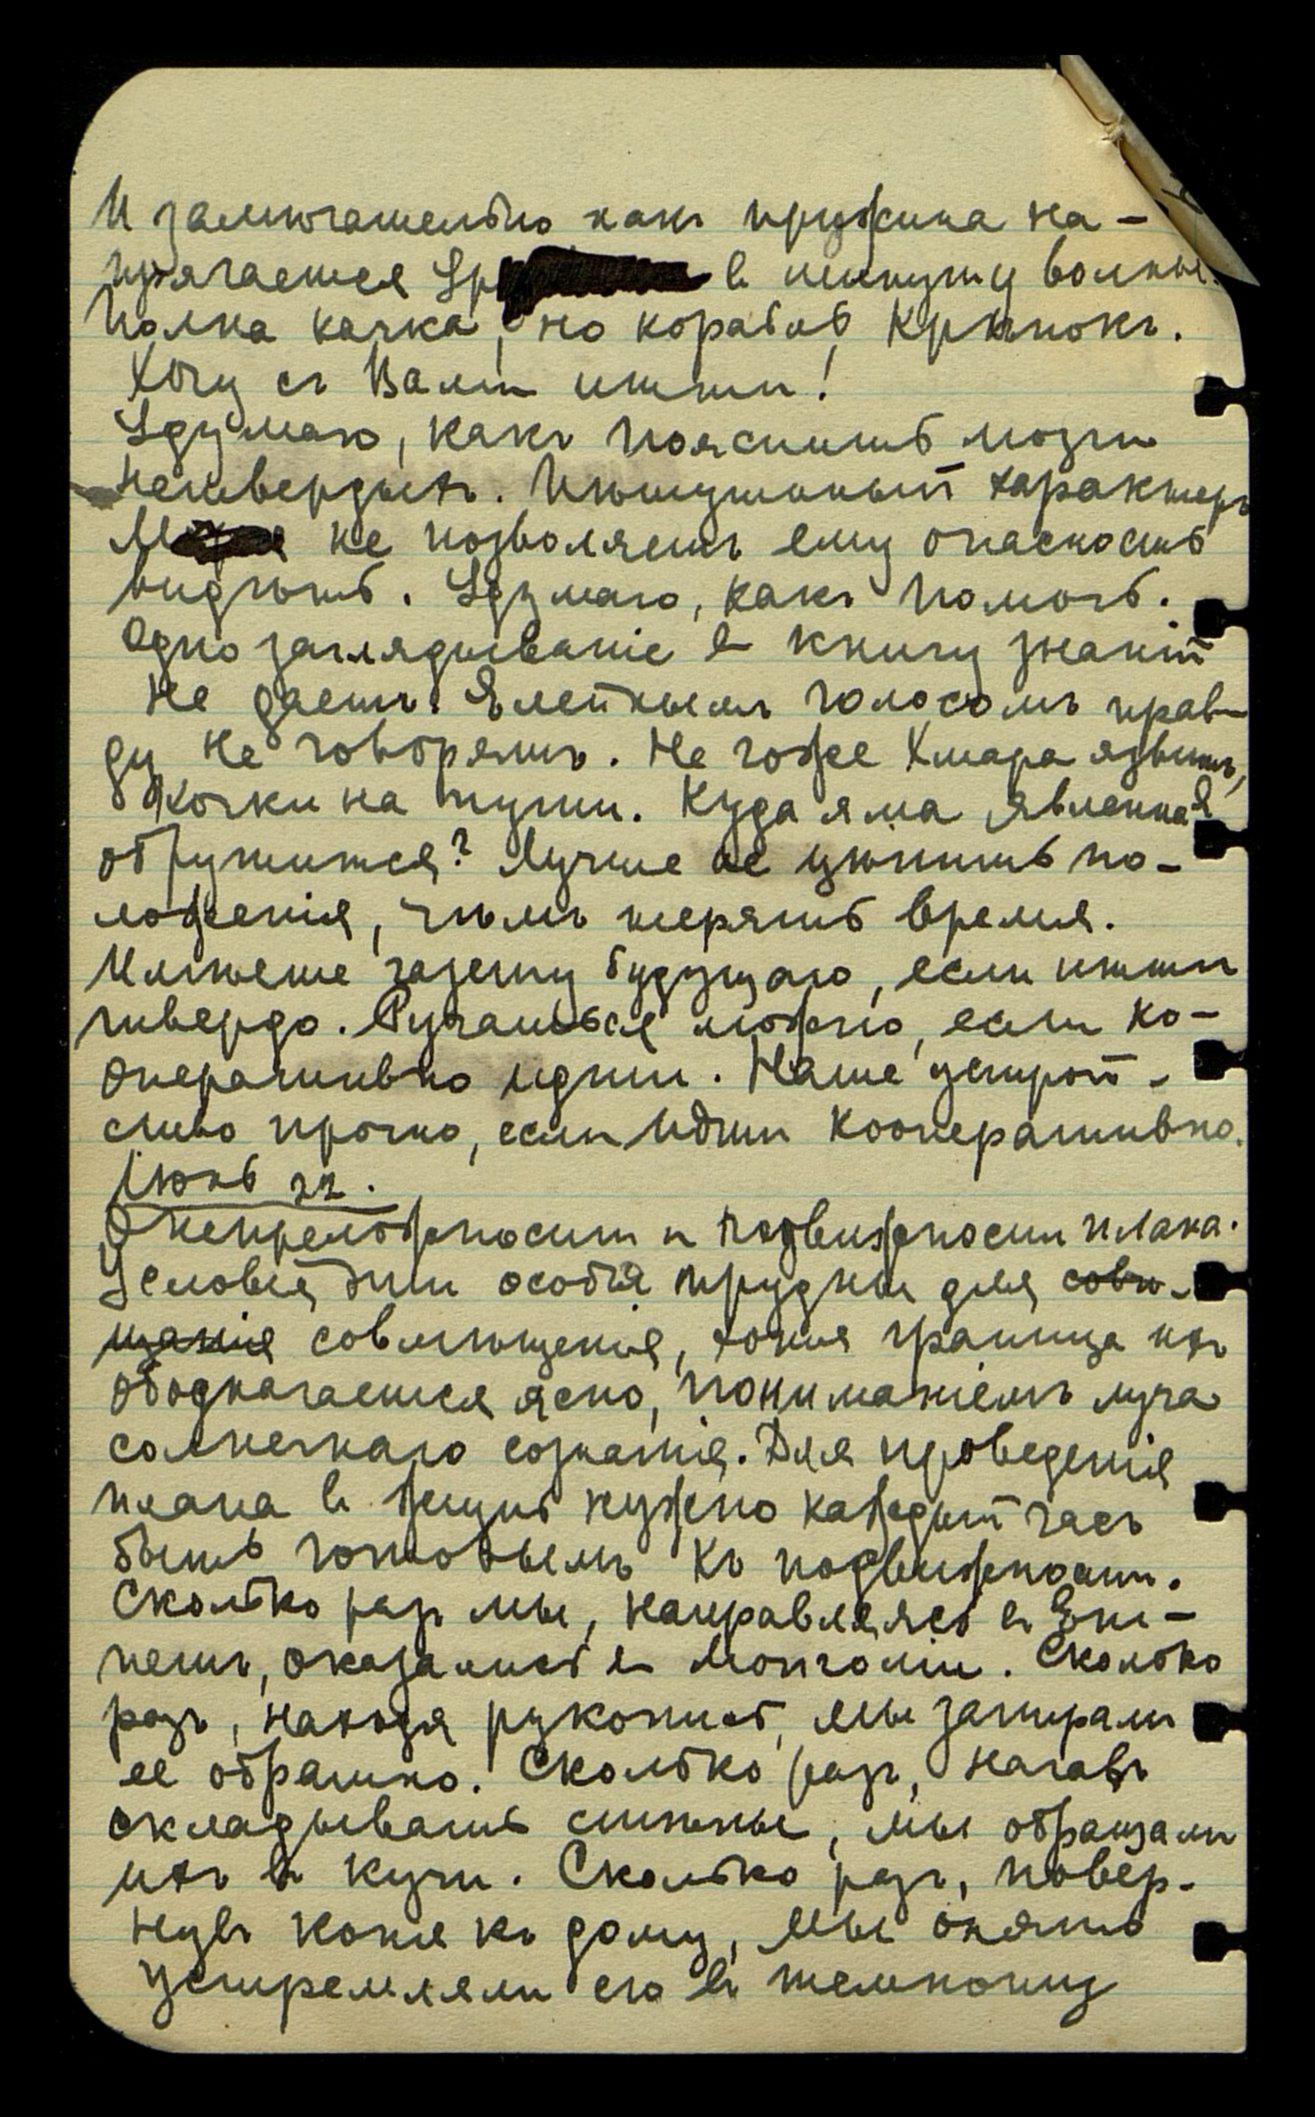 И замѣчательно какъ пружина на-
прягается Ур в минуту волны.
Полна качка, но корабль крѣпокъ.
Хочу съ Вами итти!
Удумаю, какъ пояснить мозги
нетвердых. Пѣтушиный характеръ
М не позволяетъ ему опасность
видѣть. Удумаю, какъ помочь.
Одно заглядываніе в книгу знаній
не даетъ. Елейнымъ голосомъ прав-
ду не говорятъ. Не гоже Хмара язвитъ,
Кочки на пути. Куда яма явленная
обрушится? Лучше не цѣнить по-
ложенія, чѣмъ терять время.
Имѣете газету будущаго, если итти
твердо. Ручаться можно, если ко-
оперативно идти. Наше устрой-
ство прочно, если идти кооперативно.
Июнь 22.
О непреложности и подвижности плана.
Условія эти особо трудны для совѣ-
щанія совмѣщенія, хотя граница их
обозначается ясно, пониманіемъ луча
солнечнаго сознанія. Для проведенія
плана в жизнь нужно каждый часъ
быть готовымъ къ подвижности.
Сколько раз мы, направляясь в Еги-
петъ, оказались в Монголіи. Сколько
разъ, находя рукопись, мы запирали
ее обратно. Сколько разъ, начавъ
складывать стѣны, мы обращали
ихъ в кучи. Сколько разъ, повер-
нувъ коня къ дому, мы опять
устремляли его в темноту